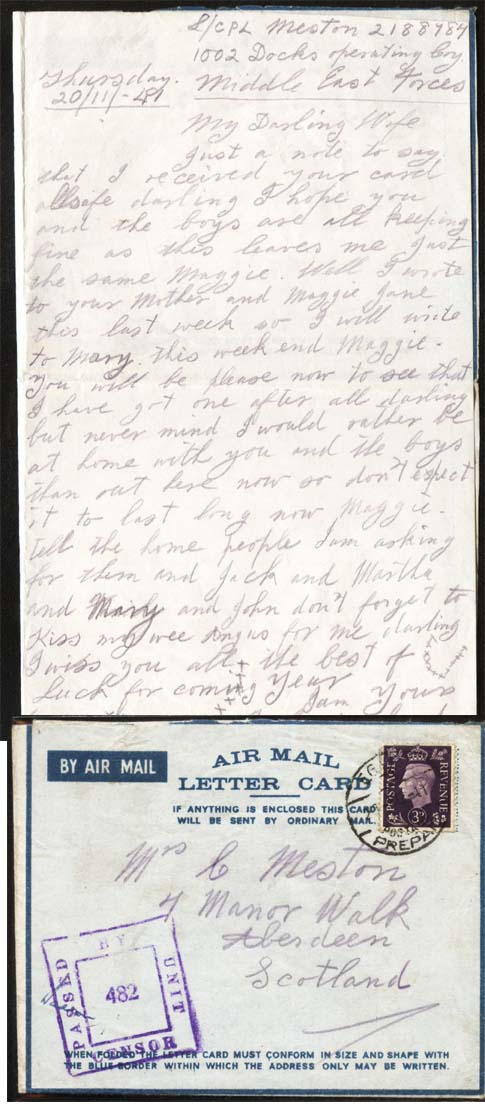 L/CPL Meston 2188484
1002 Docks operating Coy
Middle East Forces
Thursday.
20/11/-41
My Darling Wife
Just a note to say
that I received your card
allsafe darling I hope you
and the boys are all keeping
fine as this leaves me just
the same Maggie. Well I wrote
to your Mother and Maggie Jane
this last week so I will write
to Mary this week end Maggie.
You will be please now to see that
I have got one after all darling
but never mind I would rather be
at home with you and the boys
than out here now so don't expect
it to last long now Maggie.
Tell the home people I am asking
for them and Jack and Martha
and Mary and John don't forget to
Kiss my wee Angus for me darling
I wiss you all the best of
Luck for coming year
I am yours
BY AIR MAIL
AIR MAIL
LETTER CARD
IF ANYTHING IS ENCLOSED THIS CARD
WILL BE SENT BY ORDINARY MAIL.
POSTAGE
REVENUE
3D
PREPA
Mrs C Meston
4 Manor Walk
Aberdeen
Scotland
PASSED BY UNIT CENSOR
482
WHEN FOLDED THE LETTER CARD MUST CONFORM IN SIZE AND SHAPE WITH
THE BLUE BORDER WITHIN WHICH THE ADDRESS ONLY MAY BE WRITTEN.